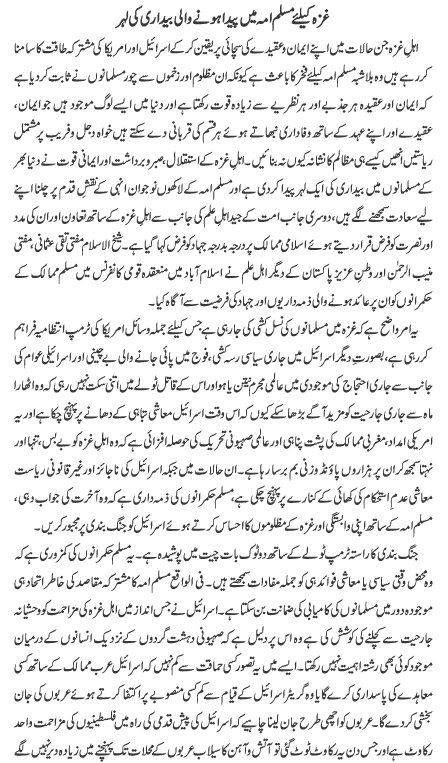 غزہ کیلئے مسلم امہ میں پیدا ہونے والی بیداری کی لہر
اہل غزہ جن حالات میں اپنے ایمان و عقیدے کی سچائی پر یقین کر کے اسرائیل اور امریکا کی مشترکہ طاقت کا سامنا
کر رہے ہیں وہ بلاشبہ مسلم امہ کیلئے فخر کا باعث ہے کیونکہ ان مظلوم اور زخموں سے چور مسلمانوں نے ثابت کر دیا ہے
کہ ایمان اور عقیدہ ہر جذبے اور ہر نظریے سے زیادہ قوت رکھتا ہے اور دنیا میں ایسے لوگ موجود ہیں جو ایمان،
عقیدے اور اپنے عہد کے ساتھ وفاداری نبھاتے ہوئے ہر قسم کی قربانی دے سکتے ہیں خواہ دجل و فریب پر مشتمل
ریاستیں انھیں کیسے ہی مظالم کا نشانہ کیوں نہ بنائیں۔ اہل غزہ کے استقلال، صبر و برداشت اور ایمانی قوت نے دنیا بھر
کے مسلمانوں میں بیداری کی ایک لہر پیدا کر دی ہے اور مسلم امہ کے لاکھوں نوجوان انہی کے نقش قدم پر چلنا اپنے
لیے سعادت سمجھنے لگے ہیں، دوسری جانب امت کے جید اہل علم کی جانب سے اہل غزہ کے ساتھ تعاون اور ان کی مدد
اور نصرت کو فرض قرار دیتے ہوئے اسلامی ممالک پر درجہ بدرجہ جہاد کو فرض کہا گیا ہے۔ شیخ الاسلام مفتی تقی عثمانی، مفتی
منیب الرحمٰن اور وطن عزیز پاکستان کے دیگر اہل علم نے اسلام آباد میں منعقدہ قومی کانفرنس میں مسلم ممالک کے
حکمرانوں کو ان پر عائد ہونے والی ذمہ داریوں اور جہاد کی فرضیت سے آگاہ کیا۔
یہ امر واضح ہے کہ غزہ میں مسلمانوں کی نسل کشی کی جارہی ہے جس کیلئے جملہ وسائل امریکا کی ٹرمپ انتظامیہ فراہم
کر رہی ہے، بصورتِ دیگر اسرائیل میں جاری سیاسی رسہ کشی، فوج میں پائی جانے والی بے چینی اور اسرائیلی عوام کی
جانب سے جاری احتجاج کی موجودی میں عالمی مجرم نیتن یاہو اور اس کے قاتل ٹولے میں اتنی سکت نہیں رہی کہ وہ اٹھارا
ماہ سے جاری جارحیت کو مزید آگے بڑھا سکے کیوں کہ اس وقت اسرائیل معاشی تباہی کے دھانے پر پہنچ چکا ہے اور یہ
امریکی امداد، مغربی ممالک کی پشت پناہی اور عالمی صہیونی تحریک کی حوصلہ افزائی ہے کہ وہ اہل غزہ کو بے بس، تنہا اور
نہتا سمجھ کر ان پر ہزاروں پاؤنڈ وزنی بم برسا رہا ہے۔ ان حالات میں جبکہ اسرائیل کی ناجائز اور غیر قانونی ریاست
معاشی عدم استحکام کی کھائی کے کنارے پر پہنچ چکی ہے، مسلم حکمرانوں کی ذمہ داری ہے کہ وہ آخرت کی جواب دہی،
مسلم امہ کے ساتھ اپنی وابستگی اور غزہ کے مظلوموں کا احساس کرتے ہوئے اسرائیل کو جنگ بندی پر مجبور کریں۔
جنگ بندی کا راستہ ٹرمپ ٹولے کے ساتھ دو ٹوک بات چیت میں پوشیدہ ہے۔ یہ مسلم حکمرانوں کی کمزوری ہے کہ
وہ محض وقتی سیاسی یا معاشی فوائد ہی کو جملہ مفادات سمجھتے ہیں۔ فی الواقع مسلم امہ کا مشترکہ مقاصد کی خاطر اتحاد ہی
موجودہ دور میں مسلمانوں کی کامیابی کی ضمانت بن سکتا ہے۔ اسرائیل نے جس انداز میں اہل غزہ کی مزاحمت کو وحشیانہ
جارحیت سے کچلنے کی کوشش کی ہے وہ اس پر دلیل ہے کہ صہیونی دہشت گردوں کے نزدیک انسانوں کے درمیان
موجود کوئی بھی رشتہ اہمیت نہیں رکھتا۔ ایسے میں یہ تصور کسی حماقت سے کم نہیں کہ اسرائیل عرب ممالک کے ساتھ کسی
معاہدے کی پاسداری کرے گا یا وہ گریٹر اسرائیل کے قیام سے کم کسی منصوبے پر اکتفا کرتے ہوئے عربوں کی جان
بخشی کر دے گا۔ عربوں کو اچھی طرح جان لینا چاہیے کہ اسرائیل کی پیش قدمی کی راہ میں فلسطینیوں کی مزاحمت واحد
رکاوٹ ہے اور جس دن یہ رکاوٹ ٹوٹ گئی تو آتش و آہن کا سیلاب عربوں کے محلات تک پہنچنے میں زیادہ دیر نہیں لگے